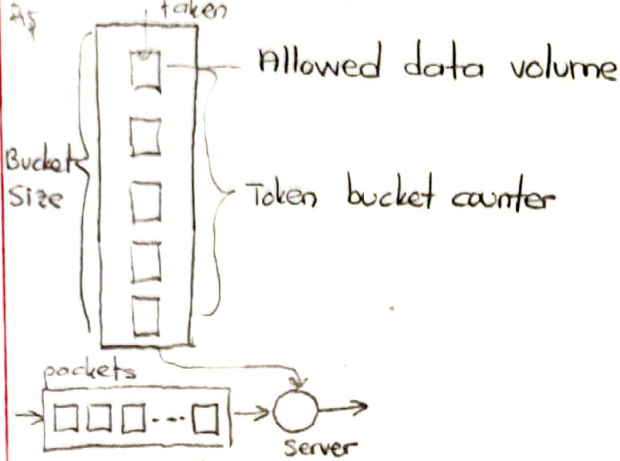 token
Allowed data volume
Bucket
Size
Token bucket counter
packets
server